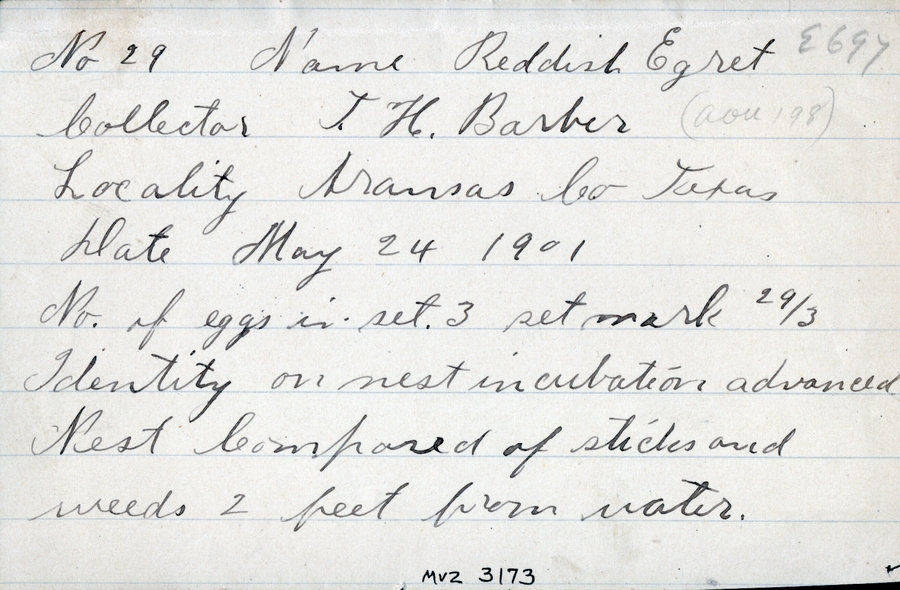 No 29 Name Reddish Egret E697
Collector T. H. Barber (aou 198)
Locality Aransas Co Texas
Date May 24 1901
No. of eggs in set. 3 set mark 29/3
Identity on nest incubation advanced
Nest Composed of sticks and
weeds 2 feet from water.
MVZ 3173